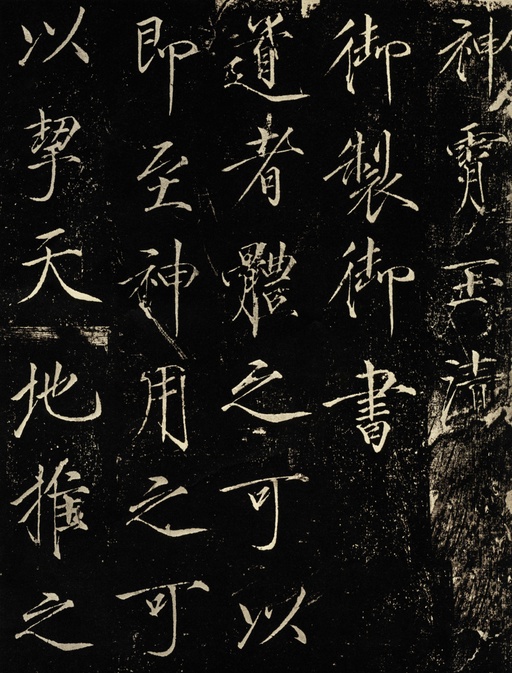 神霄玉清
御製御書
道者體之可以
即至神用之可
以挈天地推之